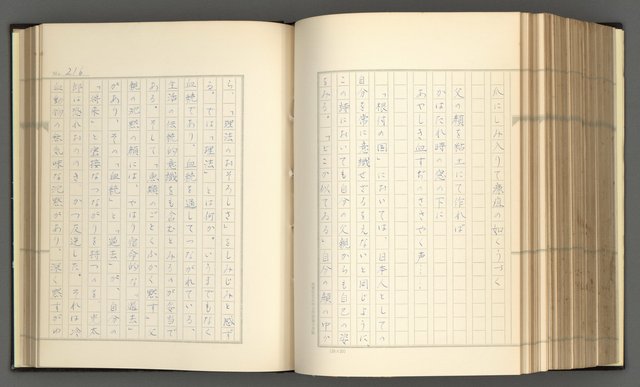 爪にしみ入りて療疽の如くうづく
父の顔を粘土にて作れば
かはたれ時の窓の下に
あやしき血すぢのささやく声…
「根付の国」においては、日本人としての
自分を常に意識せざるをえないと同じように、
この詩においても自分の父親からも自己の姿
をみる。「どこか似てゐる」自分の顔の中か
No. 216
ら、「理法のおそろしさ」をしみじみと感ず
る。では「理法」とは何か。いうまでもなく
血統であり、血統を通してつながれている、
生活の伝統的意識をも含むとみるのが妥当で
ある。そして「無類のごとくふかく黙す」父
親の沈黙の顔には、やはり宿命的な「過去」
があり、その「血統」と「過去」が、自分の
「将来」と密接なつながりを持つのを、光太
郎は恐れおののき、かつ反逆した。それは冷
血動物の無気味な沈黙があり、深く黙すがゆ
(20×20)